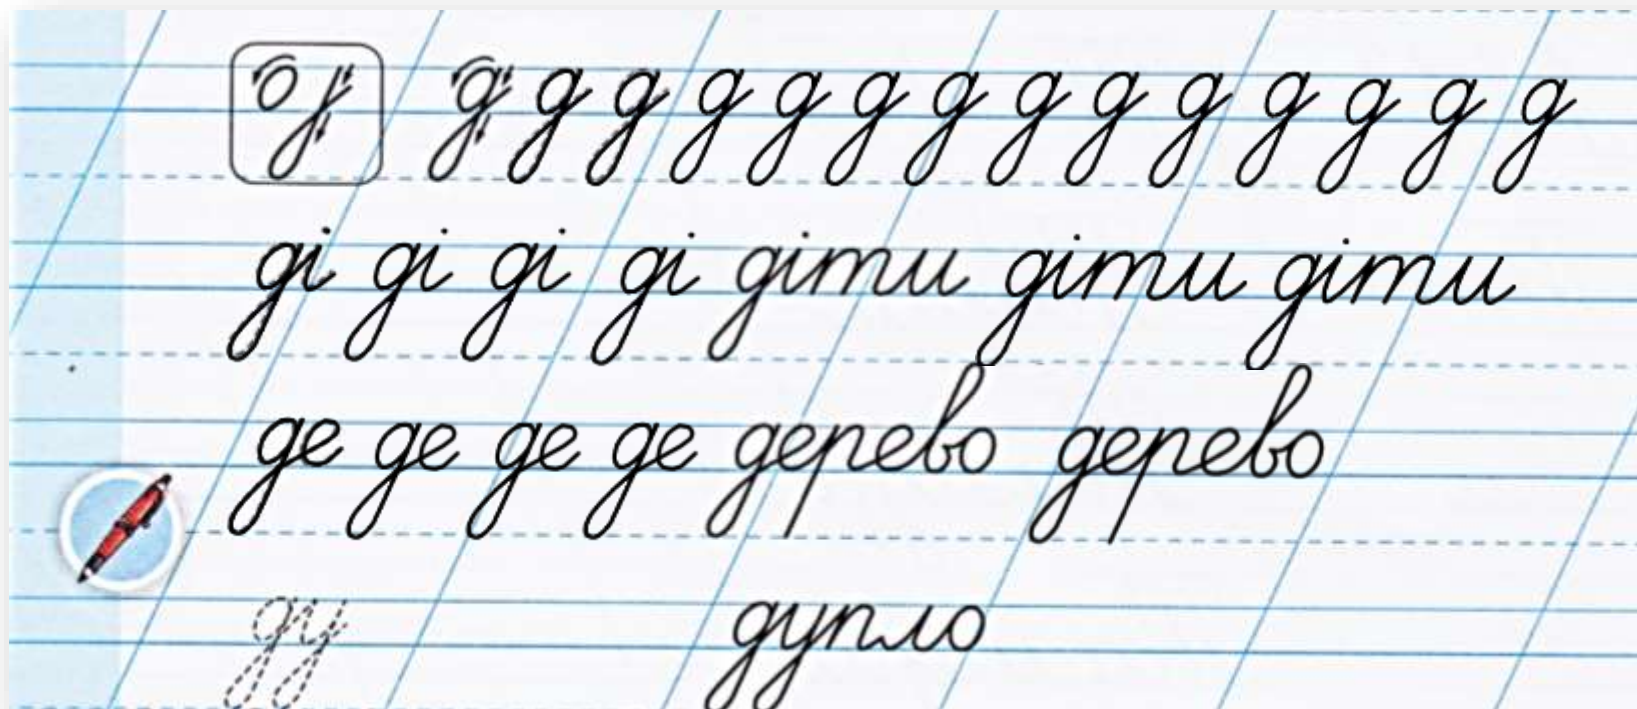 д д д д д д д д д д д д д д
ді ді ді ді діти діти діти
де де де де дерево дерево
ду дупло